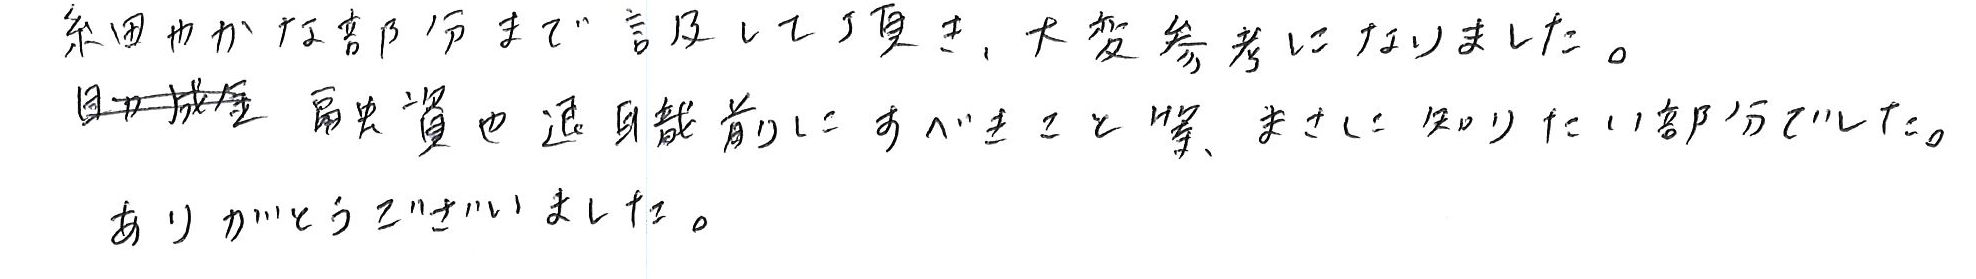 細やかな部分まで言及して頂き、大変参考になりました。
助成金 融資や退職前にすべきこと等、まさに知りたい部分でした。
ありがとうございました。